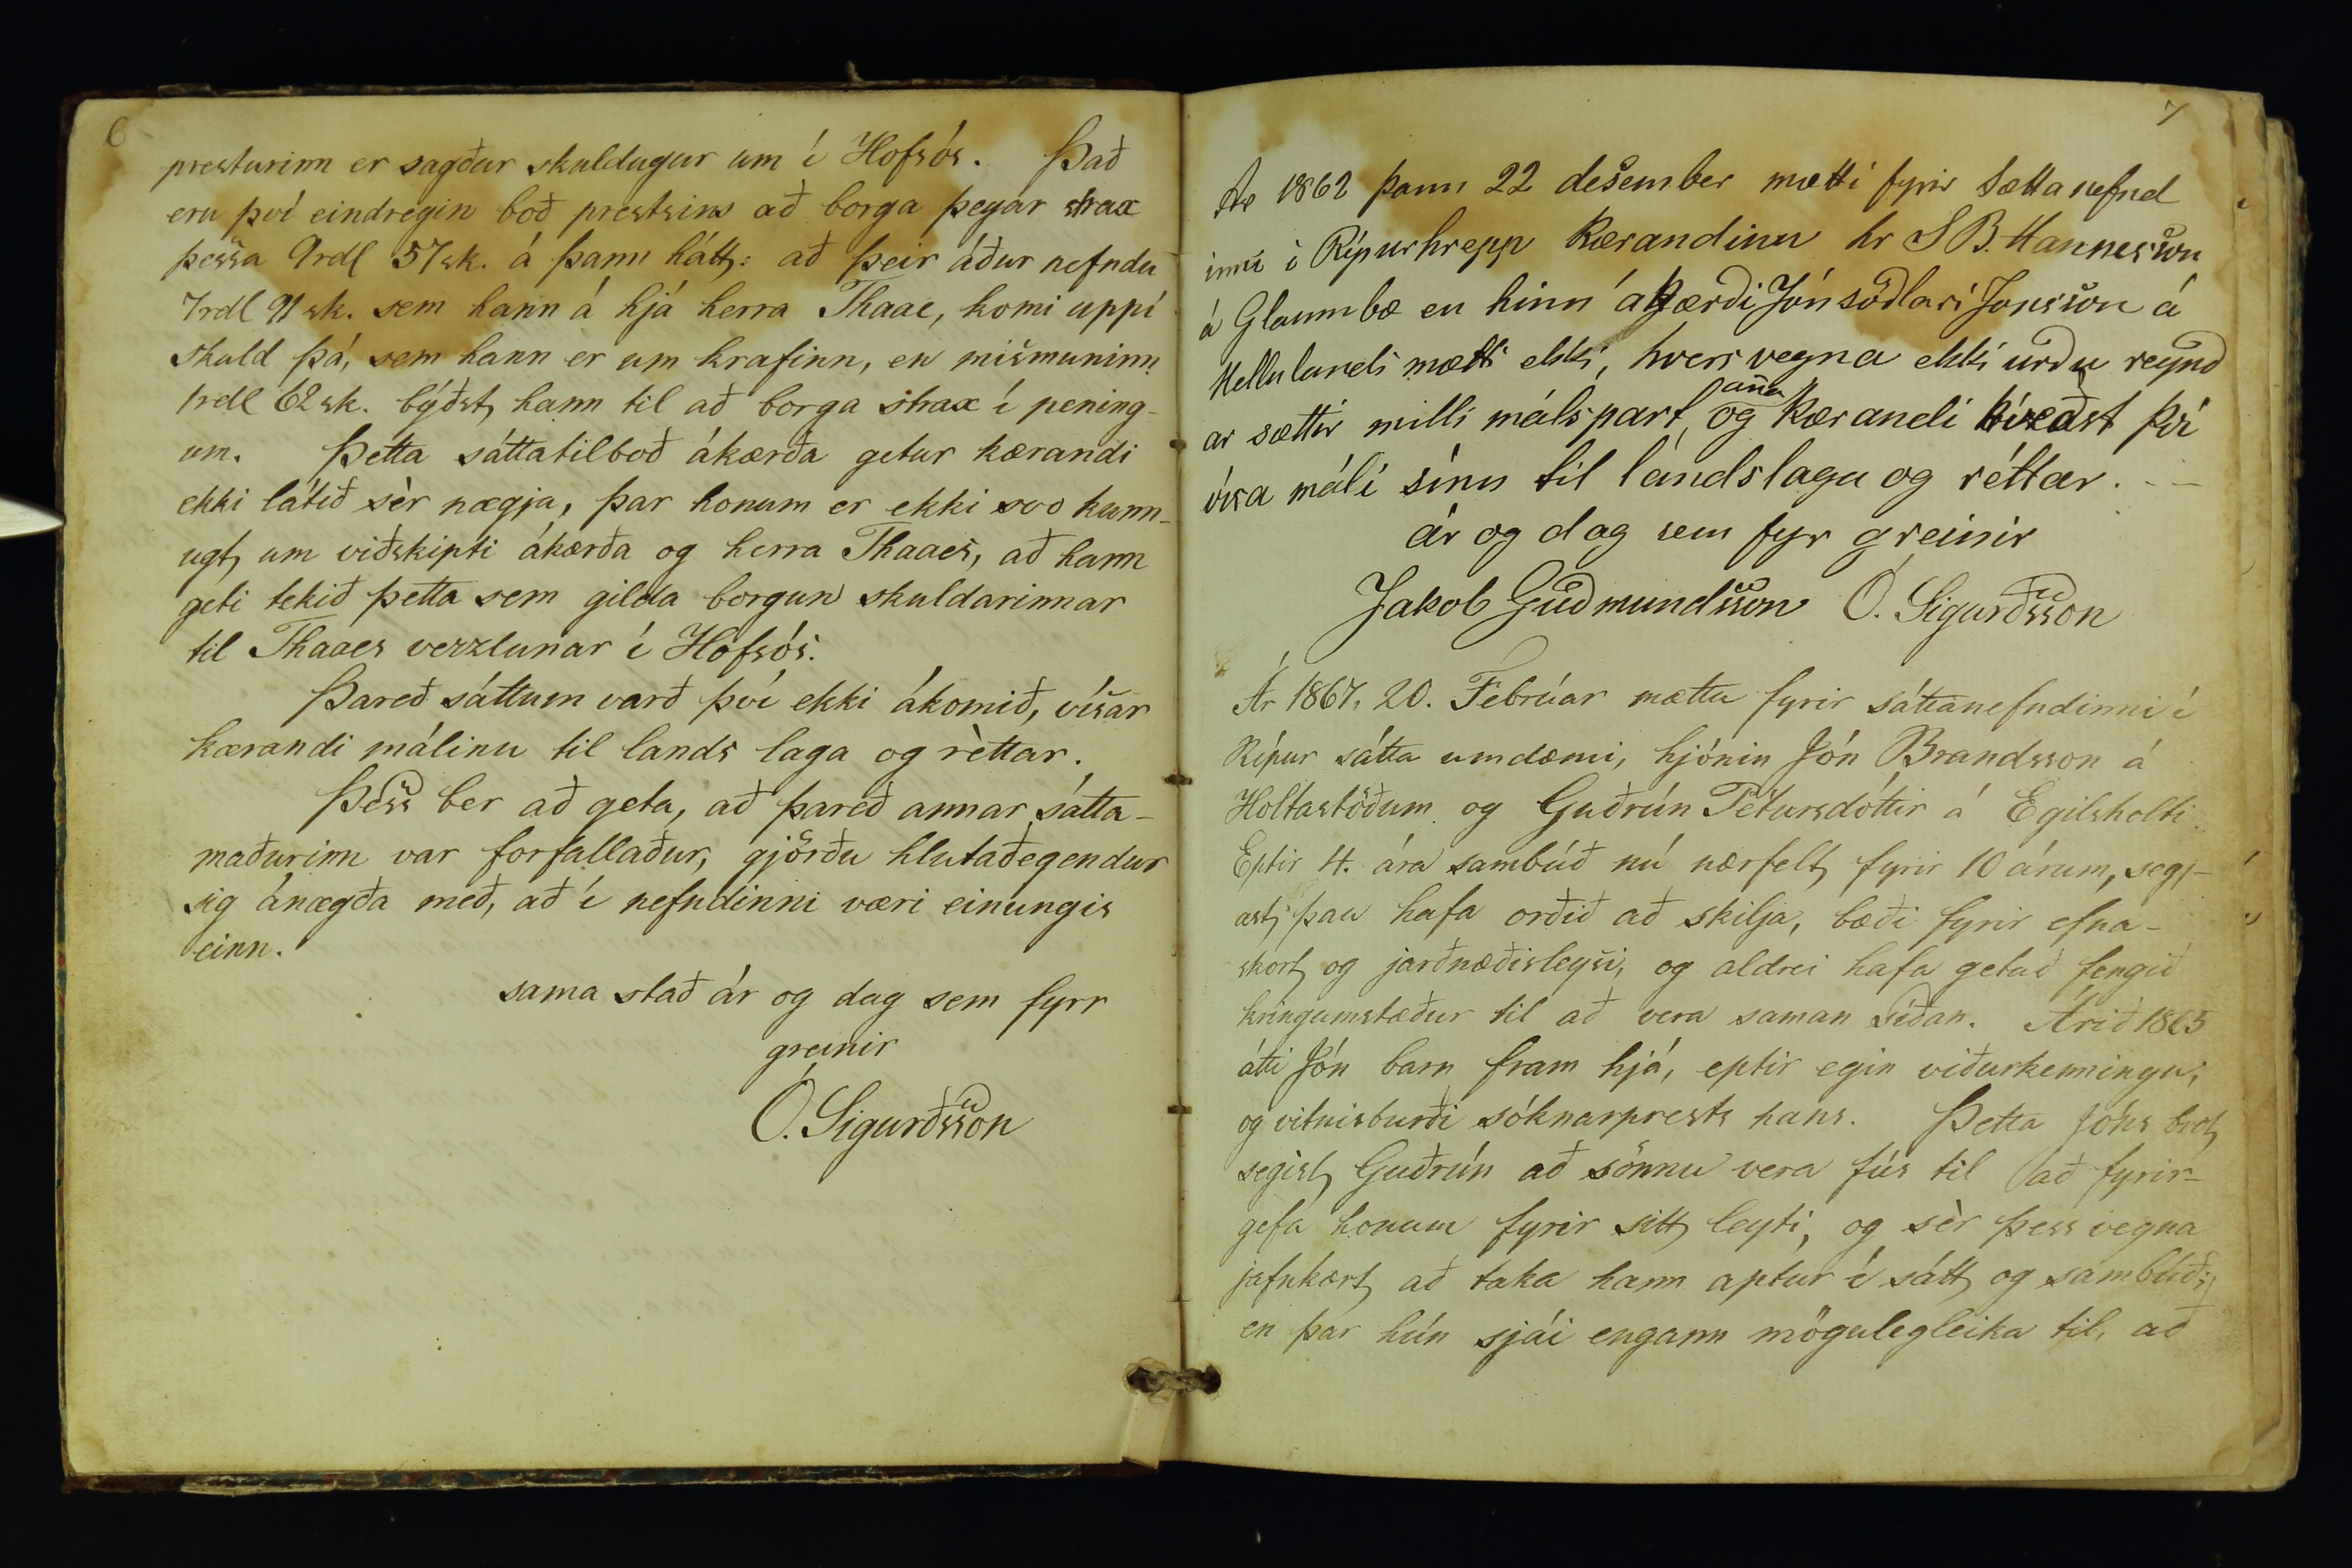 6
presturinn er sagður skuldugur um í Hofsós. Það
eru því eindregin boð prestsins að borga þegar strax
þessa 9rdl 57sk. á þann hátt: að þeir áður nefndu
7rdl 91sk. sem hann á hjá herra Thaae, komi uppí
skuld þá, sem hann er um krafinn, en mismuninn
1rdl 62sk. býðst hann til að borga strax í pening-
um. Þetta sáttatilboð ákærða getur kærandi
ekki látið sèr nægja, þar honum er ekki svo kunn-
ugt um viðskipti ákærða og herra Thaaes, að hann
geti tekið þetta sem gilda borgun skuldarinnar
til Thaaes verzlunar í Hofsós.
Þareð sáttum varð því ekki ákomið, vísar
kærandi málinu til lands laga og rèttar.
Þess ber að geta, að þareð annar sátta-
maðurinn var forfallaður, gjörðu hlutaðegendur
sig ánægða með, að í nefndinni væri einungis
einn.
sama stað ár og dag sem fyrr
greinir
Ó. Sigurðsson
7
Ár 1862 þann 22 desember mætti fyrir Sættanefnd
inni í Rípurhrepp Kærandinn hr S B. Hannesson
á Glaumbæ en hinn ákærði Jón södlari Jonsson á
Hellulandi mætti ekki, hvers vegna ekki urdu reynd
ar sættir milli málspart anna og Kærandi því
vísa máli sínu til landslaga og réttar. --
ár og dag sem fyr greinir
Jakob Guðmundsson Ó. Sigurðsson
Ár 1867, 20. Febrúar mættu fyrir sáttanefndinni í
Rípur sátta umdæmi, hjónin Jón Brandsson á
Holtastöðum og Guðrún Pétursdóttir á Egilsholti.
Eptir 4. ára sambúð nú nærfelt fyrir 10 árum, segj-
ast þau hafa orðið að skilja, bæði fyrir efna-
skort og jarðnæðisleysi, og aldrei hafa getað fengið
kringumstæður til að vera saman síðan. Árið 1865
átti Jón barn fram hjá, eptir egin viðurkenningu,
og vitnisburði sóknarprests hans. Þetta Jóns brot
segist Guðrún að sönnu vera fús til að fyrir-
gefa honum fyrir sitt leyti, og sèr þess vegna
jafnkært að taka hann aptur í sátt og sambúð;
en þar hún sjái engann mögulegleika til, að